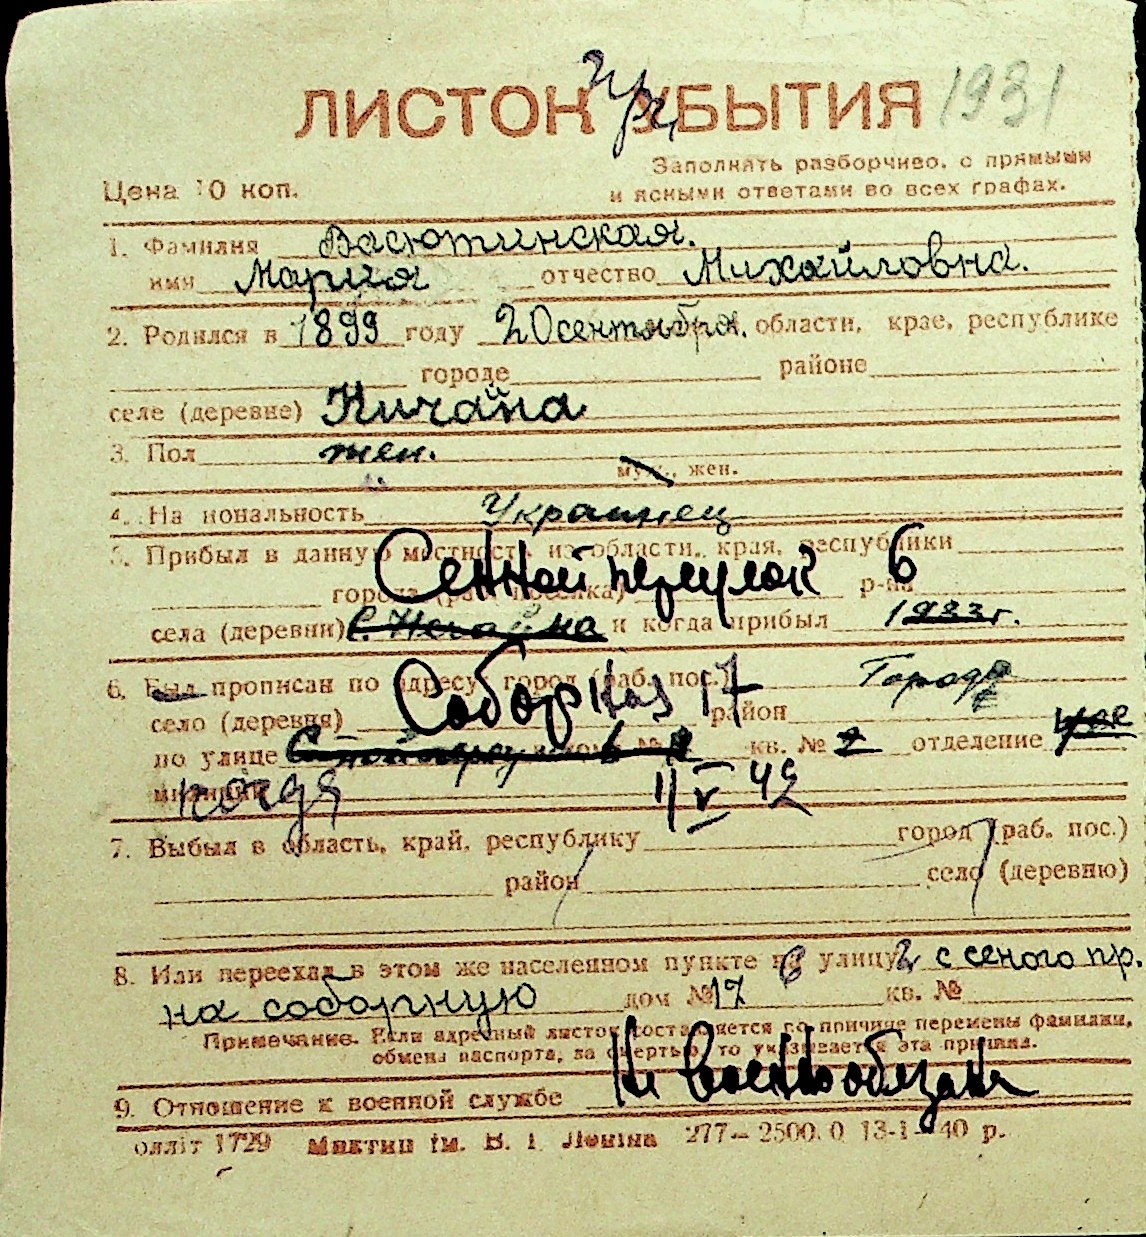 ЛИСТОК УБЫТИЯ 1931
Цена 10 коп.
Заполнять разборчиво, с прямыми
и ясными ответами во всех графах.
1. Фамилия Васютинская.
имя Мария отчество Михайловна.
2. Родился в 1899 году 20 сентября. области, крае, республике
городе районе
селе (деревне) Ничаяна
3. Пол жен.
муж., жен.
4. Национальность Украинец
5. Прибыл в данную местность из области, края, республики
Сенной переулок 6
города (раб. поселка) р-на
села (деревни) и когда прибыл 1933 г.
6. Был прописан по адресу город (раб. пос.)
село (деревня) Соборная 17 район
по улице кв. № 2 отделение
милиции 11 V 42
7. Выбыл в область, край, республику город (раб. пос.)
район село (деревню)
8. Или переехал в этом же населенном пункте на улицу с сеного пр.
на соборную дом № 17 кв. №
Примечание. Если адресный листок составляется по причине перемены фамилии,
обмена паспорта, за смертью, то указывается эта причина.
Не военнообязан
9. Отношение к военной службе
олліт 1729 Миктип ім. В. І. Леніна 277—2500.0 13-1—40 р.